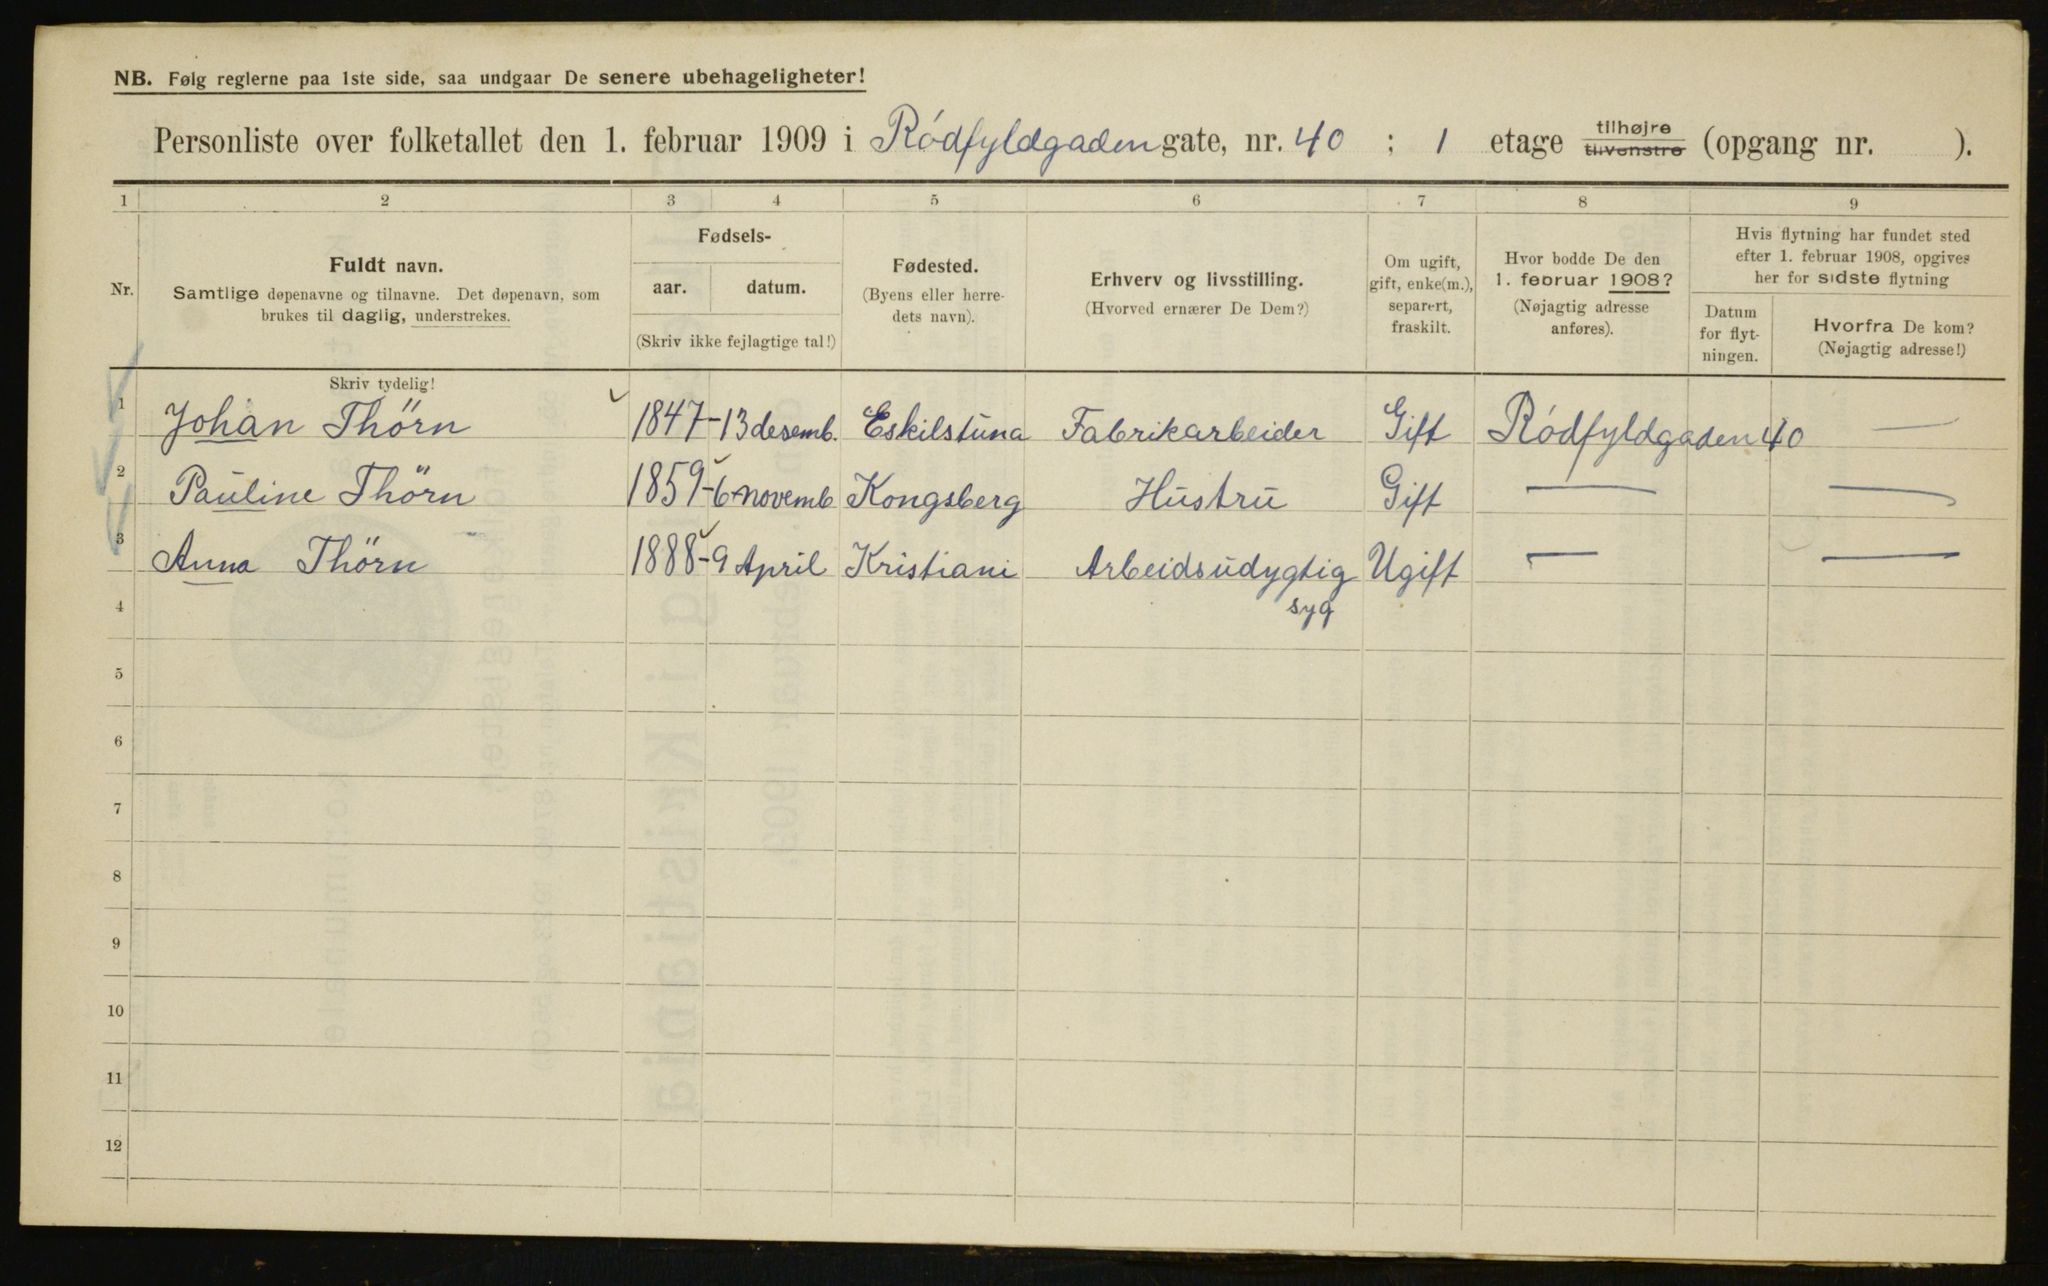 NB. Følg reglerne paa 1ste side, saa undgaar De senere ubehageligheter!
Personliste over folketallet den 1. februar 1909 i Rødfyldgaden gate, nr. 40 ; 1 etage tilhøjre tilvenstre (opgang nr. ).
1 2 3 4 5 6 7 8 9
Nr.
Fuldt navn.
Samtlige døpenavne og tilnavne. Det døpenavn, som
brukes til daglig, understrekes.
Fødsels-
aar. datum.
(Skriv ikke fejlagtige tal!)
Fødested.
(Byens eller herre-
dets navn).
Erhverv og livsstilling.
(Hvorved ernærer De Dem?)
Om ugift,
gift, enke(m.),
separert,
fraskilt.
Hvor bodde De den
1. februar 1908?
(Nøjagtig adresse
anføres).
Hvis flytning har fundet sted
efter 1. februar 1908, opgives
her for sidste flytning
Datum
for flyt-
ningen.
Hvorfra De kom?
(Nøjagtig adresse!)
Skriv tydelig!
1 Johan Thörn 1847 - 13 desemb. Eskilstuna Fabrikarbeider Gift Rødfyldgaden 40 —
2 Pauline Thörn 1859 - 6 novemb Kongsberg Hustru Gift — —
3 Anna Thörn 1888 - 9 April Kristiani Arbeidsudygtig Ugift — —
syg
4
5
6
7
8
9
10
11
12